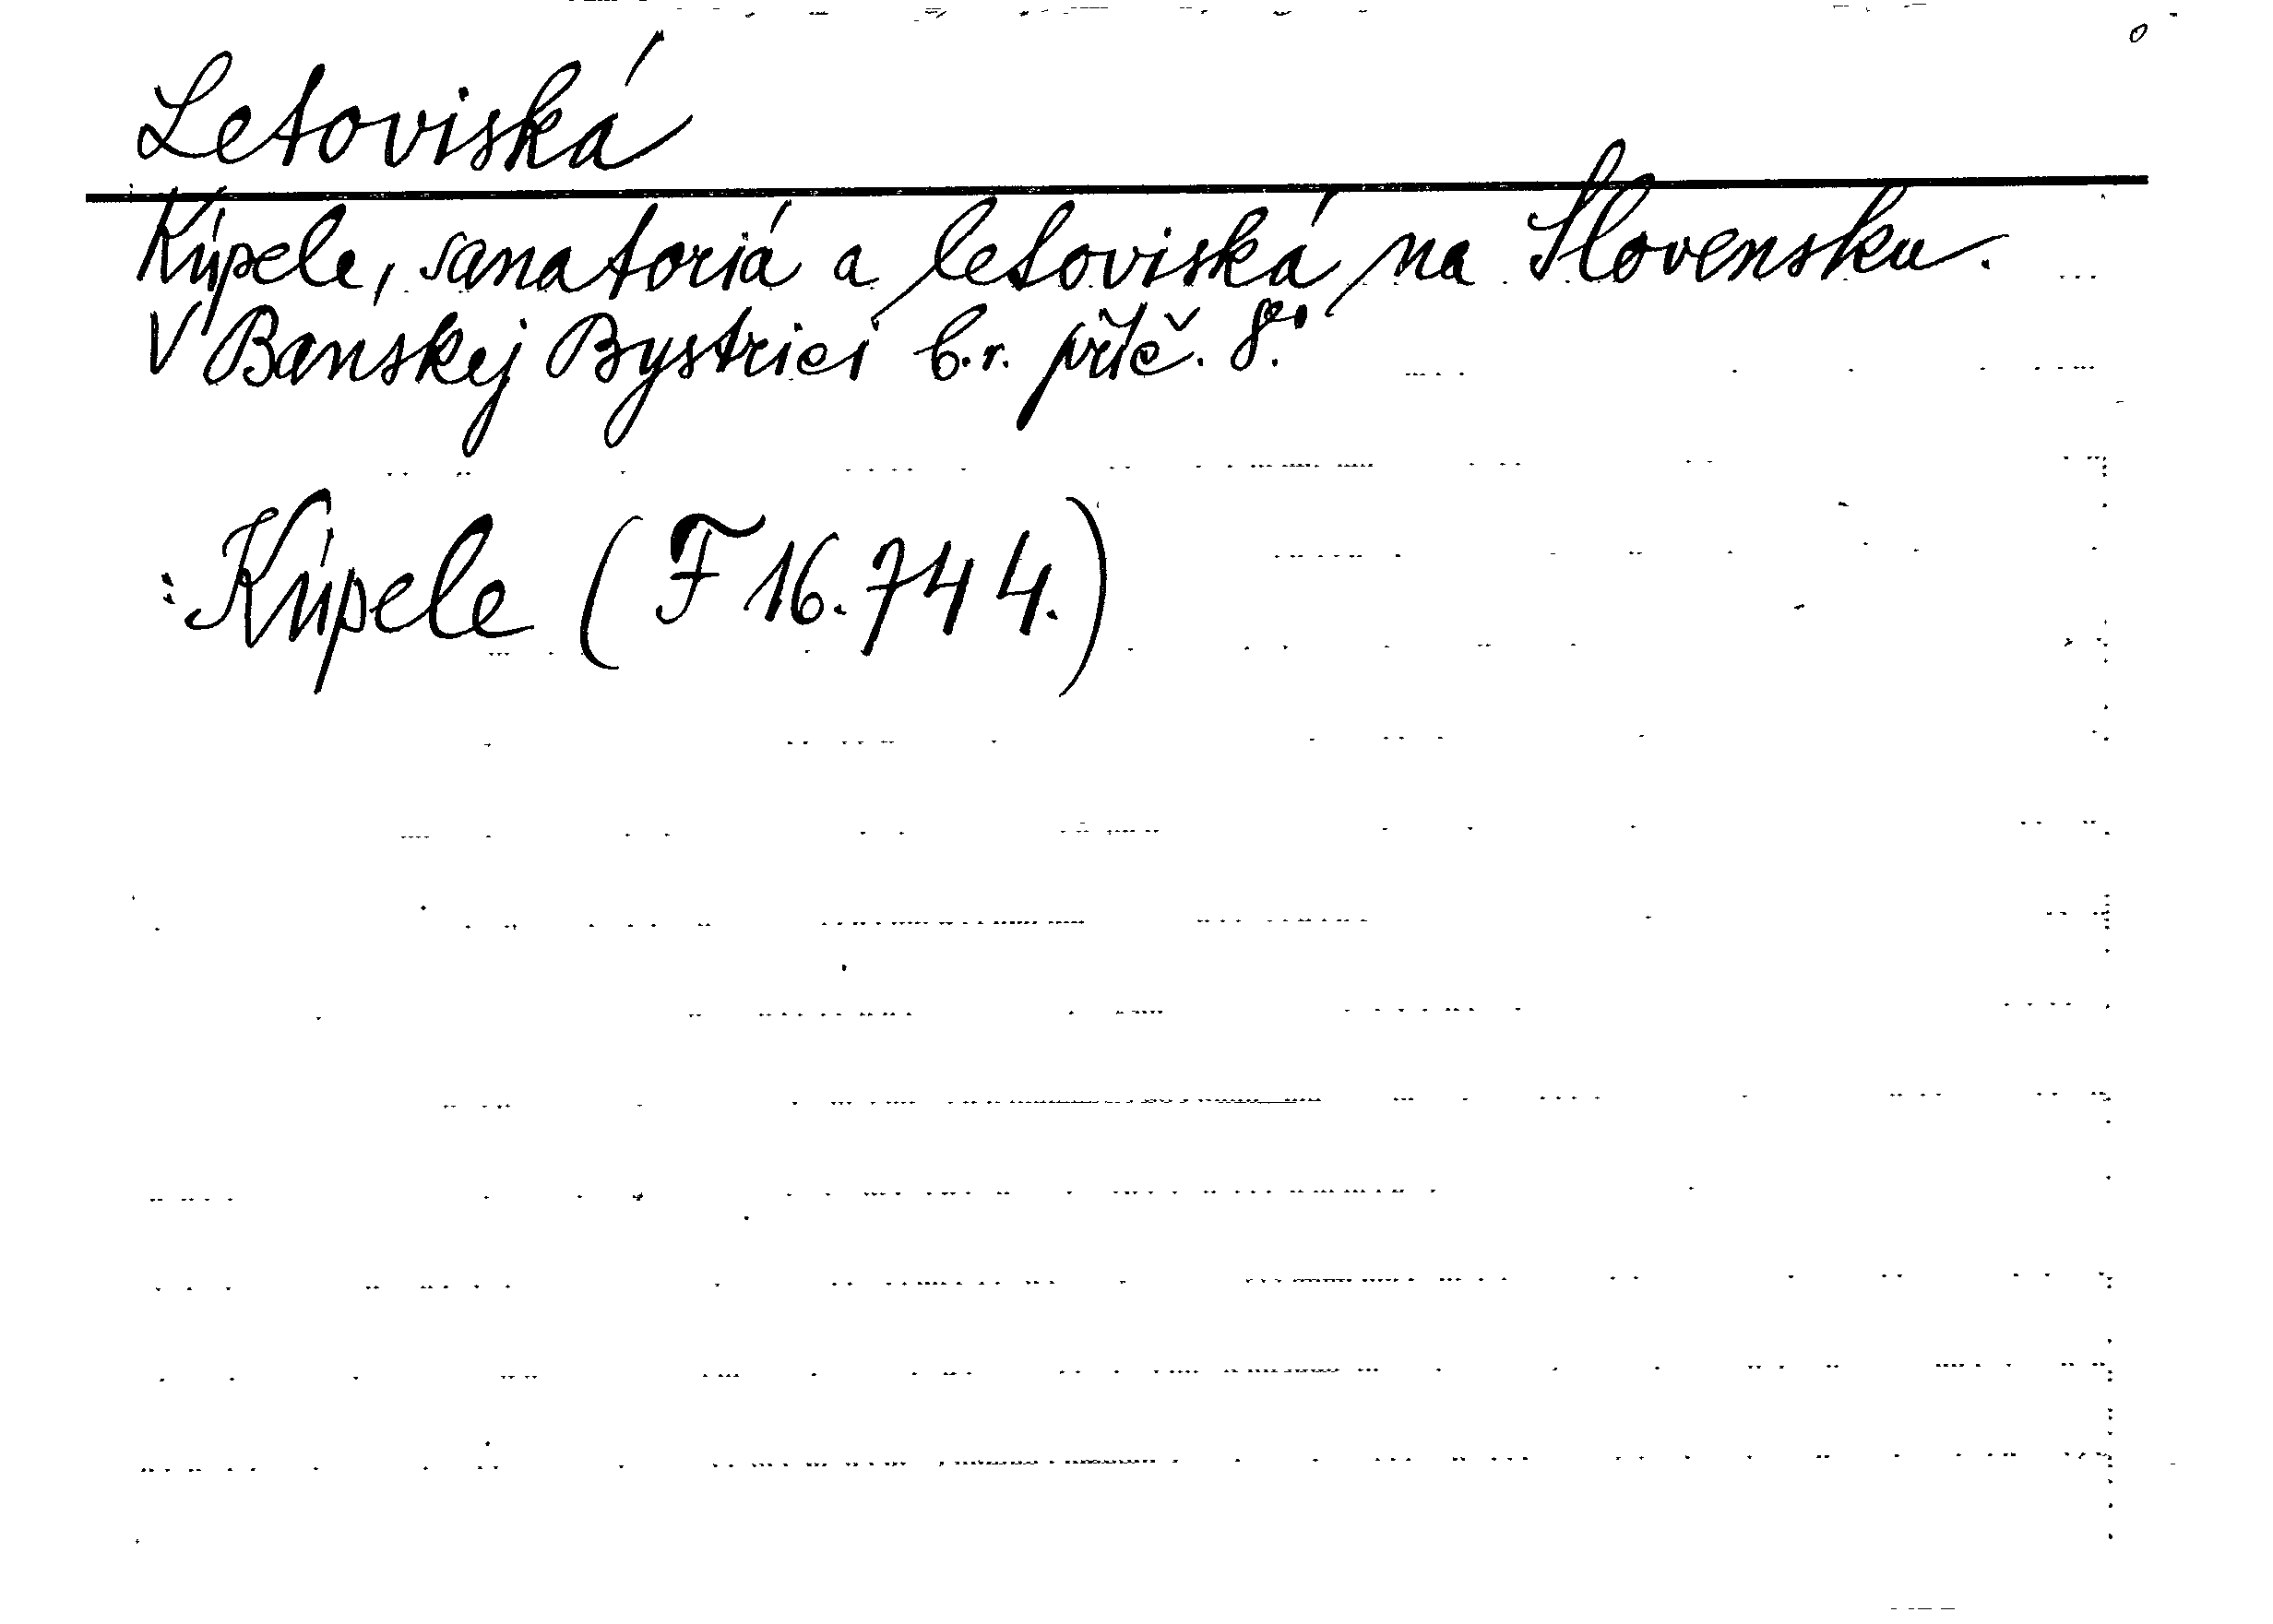 Letoviská
Kúpele, sanatoriá a letoviská na Slovensku.
V Banskej Bystrici b.r. příč. 8°.
: Kúpele (F 16.744.)